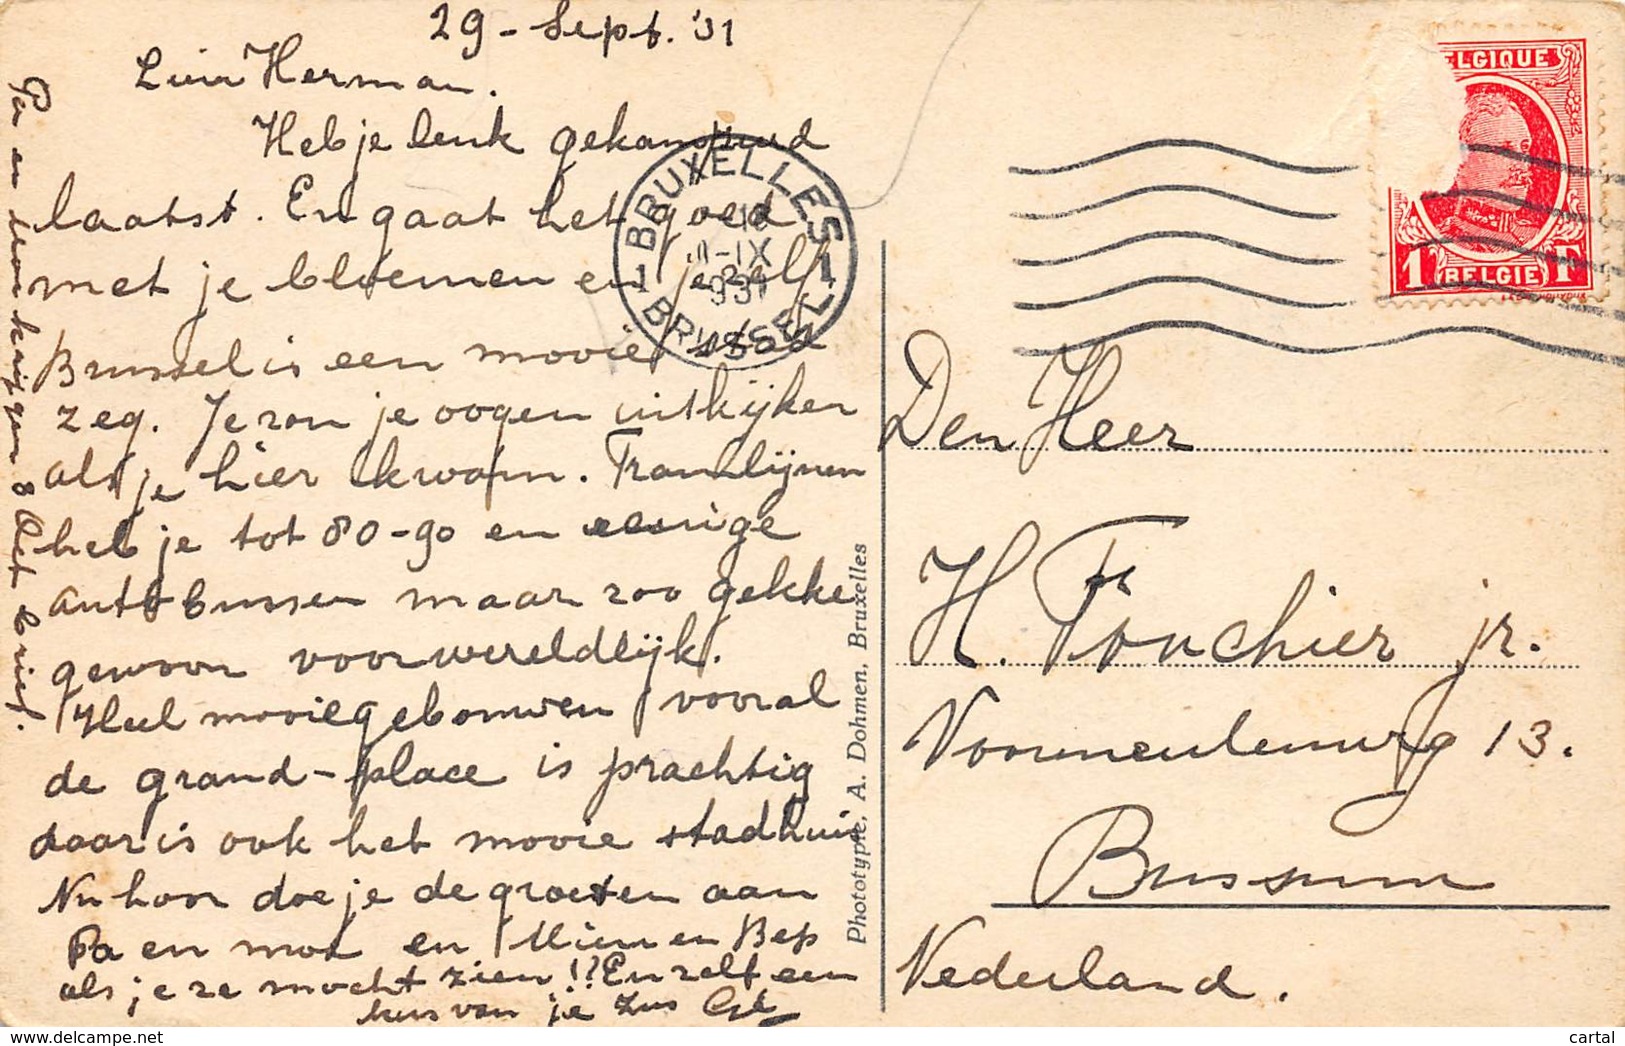 29 - Sept. '31
Herman.
Heb je leuk gekampeerd
laatst. En gaat het goed
met je bloemen en je zelf
Brussel is een mooie stad
zeg. Je zou je oogen uitkijken
als je hier kwam. Tramlijnen
heb je tot 80-90 en eenige
autobussen maar zoo gekke
gewoon voorwereldlijk.
Heel mooie gebouwen vooral
de grand-place is prachtig
daar is ook het mooie stadhuis
Nu hoor doe je de groeten aan
Pa en moe en Mien en Bep
als je ze mocht zien!? En zelf een
kus van je zus
Pa en moe krijgen brief.
BRUXELLES
1 1
18
-IX
1931
BRUSSEL
BELGIQUE
1 F
BELGIE
Phototypie, A. Dohmen, Bruxelles
Den Heer
H. Fouchier jr.
Voormeulenweg 13.
Bussum
Nederland.
delcampe.net
cartal